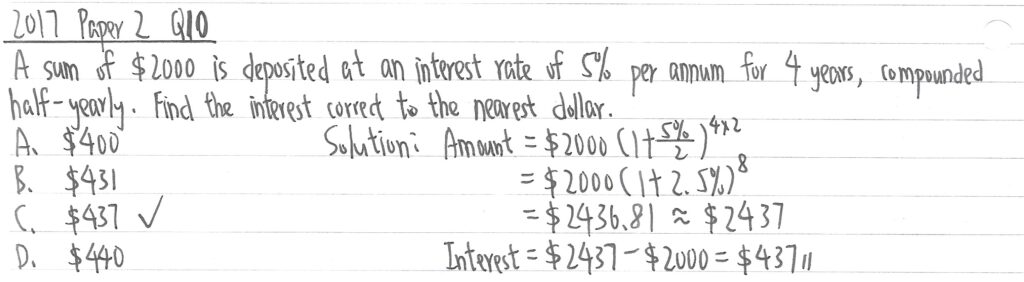 2017 Paper 2 Q10
A sum of $2000 is deposited at an interest rate of 5% per annum for 4 years, compounded
half-yearly. Find the interest correct to the nearest dollar.
A. $400
B. $431
C. $437 ✓
D. $440
Solution: Amount = $2000 (1+5%/2)^4×2
= $2000(1+2.5%)^8
= $2436.81 ≈ $2437
Interest = $2437 - $2000 = $437//